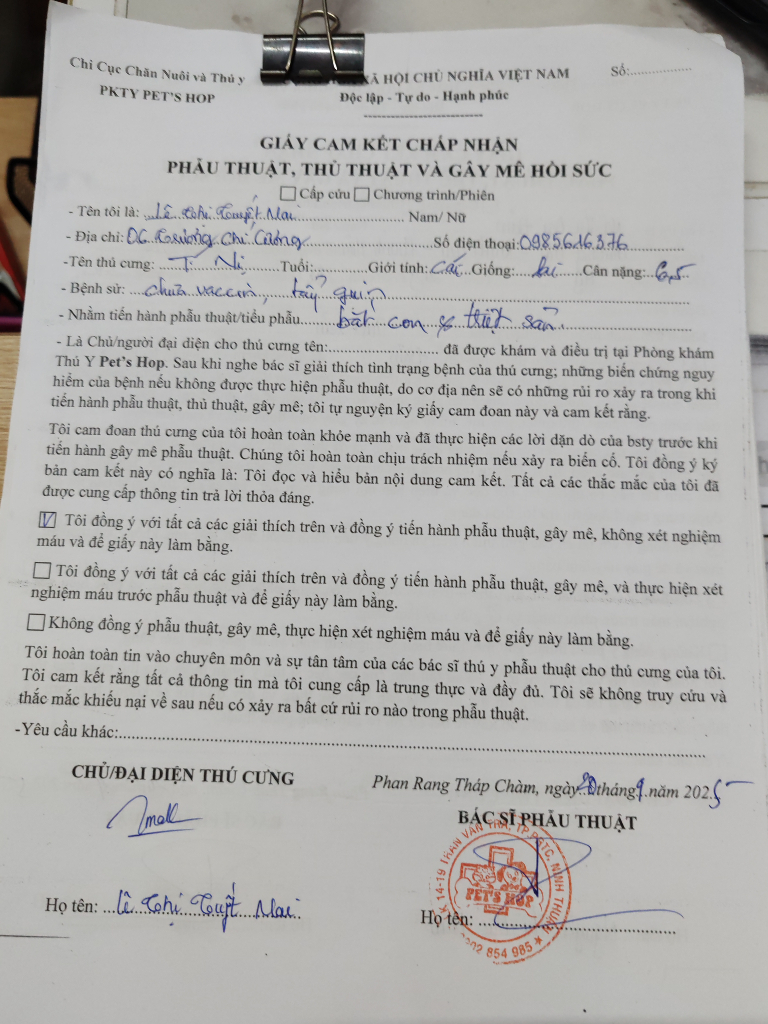 Chi Cục Chăn Nuôi và Thú y
XÃ HỘI CHỦ NGHĨA VIỆT NAM
Số:................
PKTY PET'S HOP
Độc lập - Tự do - Hạnh phúc
GIẤY CAM KẾT CHẤP NHẬN
PHẪU THUẬT, THỦ THUẬT VÀ GÂY MÊ HỒI SỨC
☐ Cấp cứu ☐ Chương trình/Phiên
- Tên tôi là: Lê Thị Tuyết Mai Nam/ Nữ
- Địa chỉ: Trương Chí Cương Số điện thoại: 0985616376
-Tên thú cưng: Tuổi:............ Giới tính: Cái Giống: lai Cân nặng: 6,5
- Bệnh sử: chưa vaccin, tẩy giun
- Nhằm tiến hành phẫu thuật/tiểu phẫu bắt con & triệt sản.
- Là Chủ/người đại diện cho thú cưng tên:........................ đã được khám và điều trị tại Phòng khám
Thú Y Pet's Hop. Sau khi nghe bác sĩ giải thích tình trạng bệnh của thú cưng; những biến chứng nguy
hiểm của bệnh nếu không được thực hiện phẫu thuật, do cơ địa nên sẽ có những rủi ro xảy ra trong khi
tiến hành phẫu thuật, thủ thuật, gây mê; tôi tự nguyện ký giấy cam đoan này và cam kết rằng.
Tôi cam đoan thú cưng của tôi hoàn toàn khỏe mạnh và đã thực hiện các lời dặn dò của bsty trước khi
tiến hành gây mê phẫu thuật. Chúng tôi hoàn toàn chịu trách nhiệm nếu xảy ra biến cố. Tôi đồng ý ký
bản cam kết này có nghĩa là: Tôi đọc và hiểu bản nội dung cam kết. Tất cả các thắc mắc của tôi đã
được cung cấp thông tin trả lời thỏa đáng.
☑ Tôi đồng ý với tất cả các giải thích trên và đồng ý tiến hành phẫu thuật, gây mê, không xét nghiệm
máu và để giấy này làm bằng.
☐ Tôi đồng ý với tất cả các giải thích trên và đồng ý tiến hành phẫu thuật, gây mê, và thực hiện xét
nghiệm máu trước phẫu thuật và để giấy này làm bằng.
☐ Không đồng ý phẫu thuật, gây mê, thực hiện xét nghiệm máu và để giấy này làm bằng.
Tôi hoàn toàn tin vào chuyên môn và sự tận tâm của các bác sĩ thú y phẫu thuật cho thú cưng của tôi.
Tôi cam kết rằng tất cả thông tin mà tôi cung cấp là trung thực và đầy đủ. Tôi sẽ không truy cứu và
thắc mắc khiếu nại về sau nếu có xảy ra bất cứ rủi ro nào trong phẫu thuật.
-Yêu cầu khác:................
CHỦ/ĐẠI DIỆN THÚ CƯNG
Phan Rang Tháp Chàm, ngày 20 tháng 9 năm 2025
BÁC SĨ PHẪU THUẬT
14-19 TRẦN VĂN TRÀ, TP.PRTC, NINH THUẬN
PET'S HOP
854 985
Họ tên: Lê Thị Tuyết Mai
Họ tên: ................